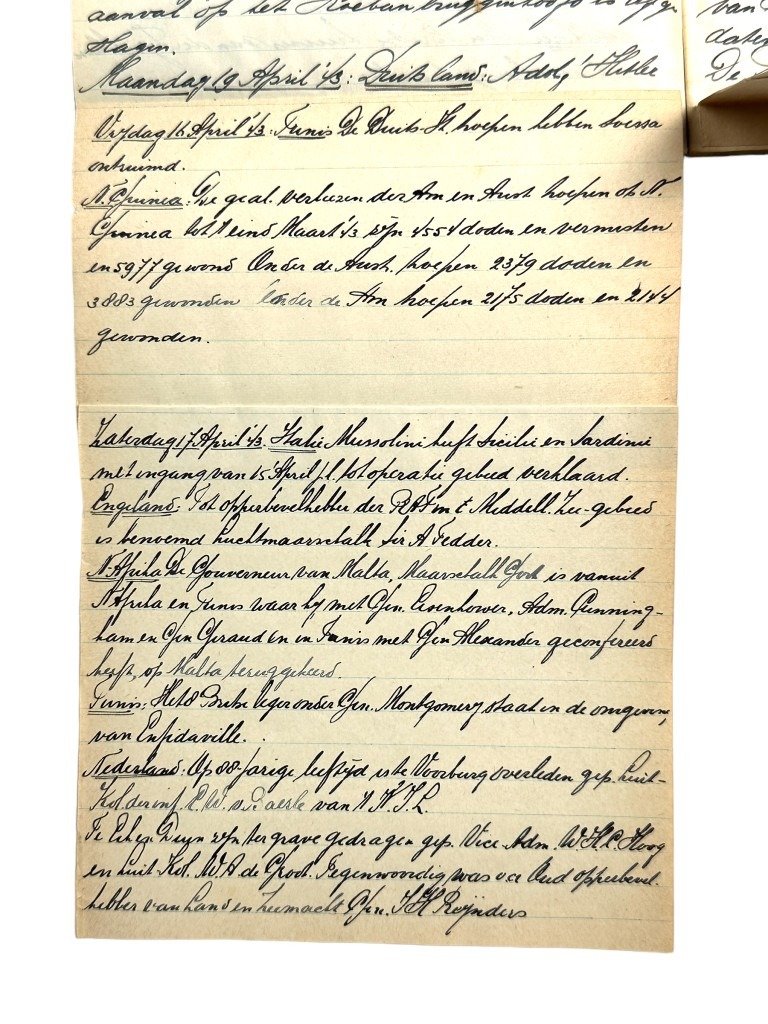 aanval op het Koeban bruggenhoofd is afge
Hagen.
Maandag 19 April '43: Duitsland: Adolf Hitle
van
daten
De
Vrijdag 16 April '43: Tunis De Duits-It. troepen hebben Soessa
ontruimd.
N. Guinea: De geal. verliezen der Am en Aust troepen op N.
Guinea tot 't eind Maart '43 zijn 4554 doden en vermisten
en 5977 gewond Onder de Aust. troepen 2379 doden en
3883 gewonden Onder de Am troepen 2175 doden en 2144
gewonden.
Zaterdag 17 April '43. Italie Mussolini heeft Sicilie en Sardinie
met ingang van 15 April j.l. tot operatie gebied verklaard.
Engeland: Tot opperbevelhebber der RAF in 't Middell. Zee-gebied
is benoemd Luchtmaarschalk Sir A Tedder.
N-Afrika De Gouverneur van Malta, Maarschalk Gort is vanuit
N Afrika en Tunis waar hij met Gen. Eisenhower, Adm. Cunning-
ham en Gen Giraud en in Tunis met Gen Alexander geconfereerd
heeft, op Malta teruggekeerd.
Tunis: Het 8 Britse leger onder Gen. Montgomery staat in de omgeving
van Enfidaville.
Nederland: Op 88-jarige leeftijd is te Voorburg overleden gep. Luit-
Kol. der inf. E. W. v. Baerle van 't K.I.L
Te Eik en Duin zijn ter grave gedragen gep. Vice. Adm. W. H. C. Hoog
en Luit Kol. W. A de Groot. Tegenwoordig was o a Oud opperbevel.
hebber van Land en Zeemacht Gen. I H Reijnders